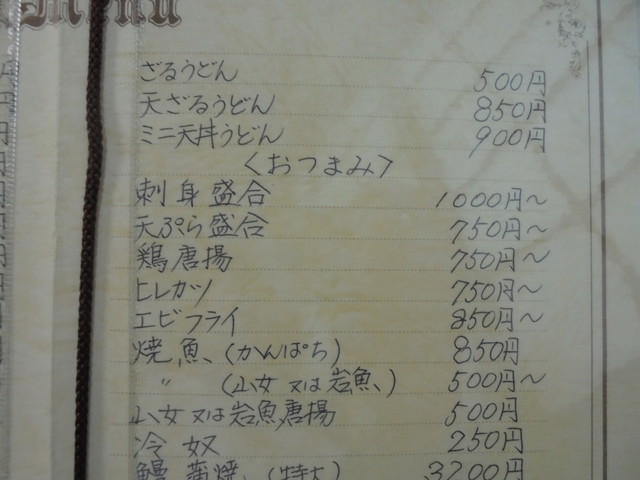 Menu
ざるうどん 500円
天ざるうどん 850円
ミニ天丼うどん 900円
〈おつまみ〉
刺身盛合 1000円〜
天ぷら盛合 750円〜
鶏唐揚 750円〜
ヒレカツ 750円〜
エビフライ 850円〜
焼魚、(かんぱち) 850円
〃 (山女又は岩魚、) 500円〜
山女又は岩魚唐揚 500円
冷奴 250円
鰻蒲焼、(特大) 3200円